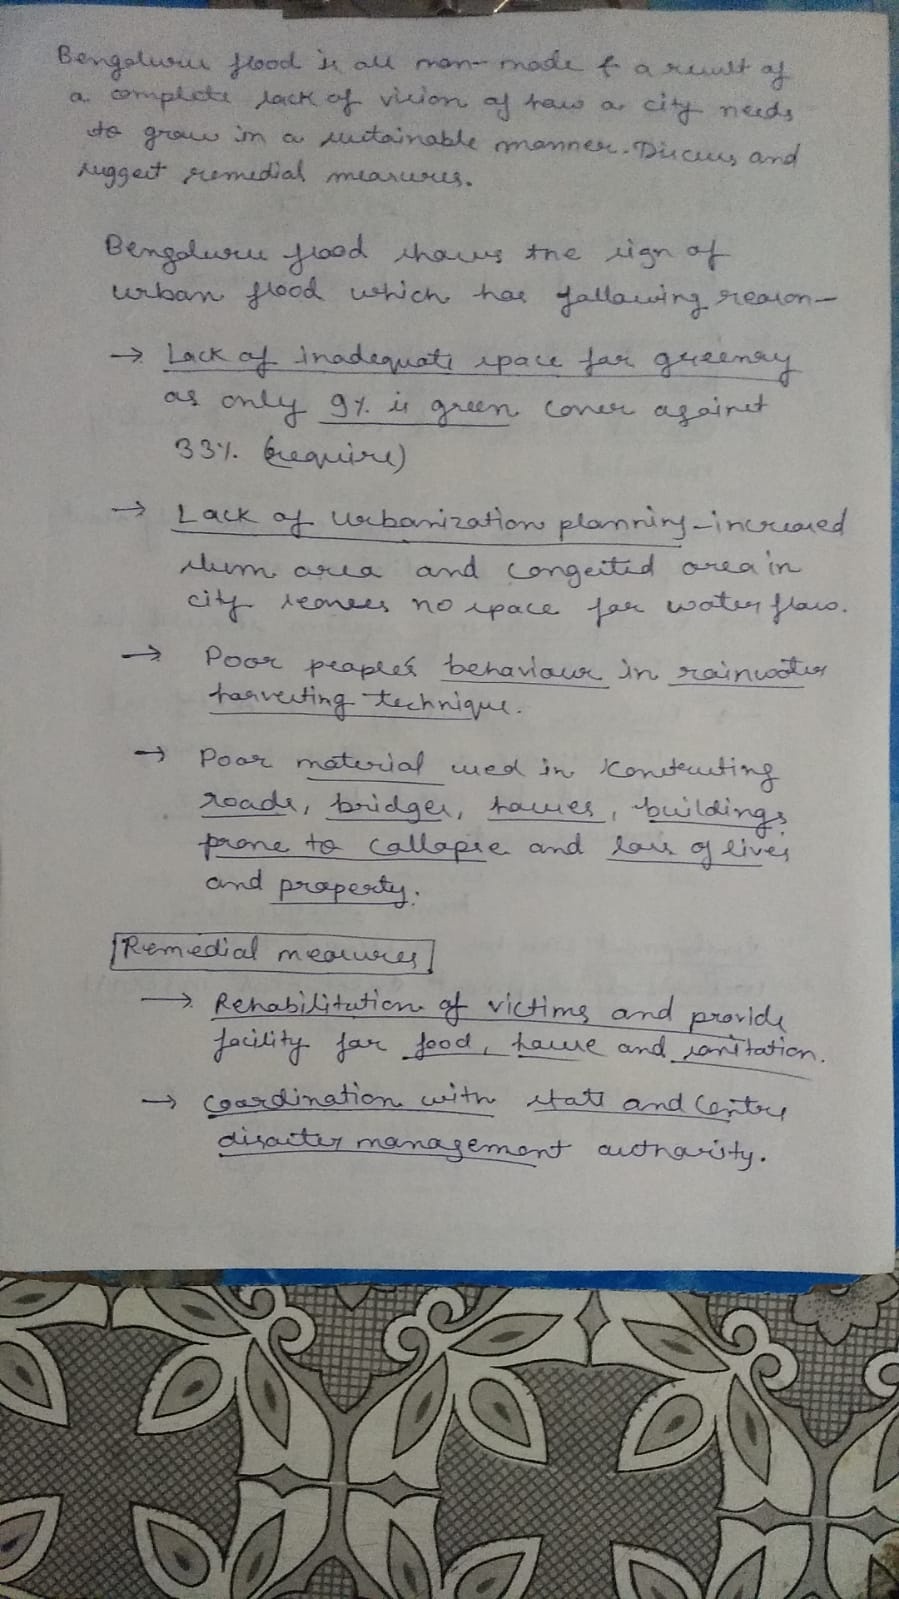 Bengaluru flood is all man-made & a result of
a complete lack of vision of how a city needs
to grow in a sustainable manner. Discuss and
suggest remedial measures.
Bengaluru flood shows the sign of
urban flood which has following reason-
→ Lack of inadequate space for greenery
as only 9% is green cover against
33% (require)
→ Lack of urbanization planning - increased
slum area and congested area in
city leaves no space for water flow.
→ Poor people's behaviour in rainwater
harvesting technique.
→ Poor material used in constructing
roads, bridges, houses, buildings
prone to collapse and loss of lives
and property.
Remedial measures
→ Rehabilitation of victims and provide
facility for food, house and sanitation.
→ Coordination with state and centre
disaster management authority.